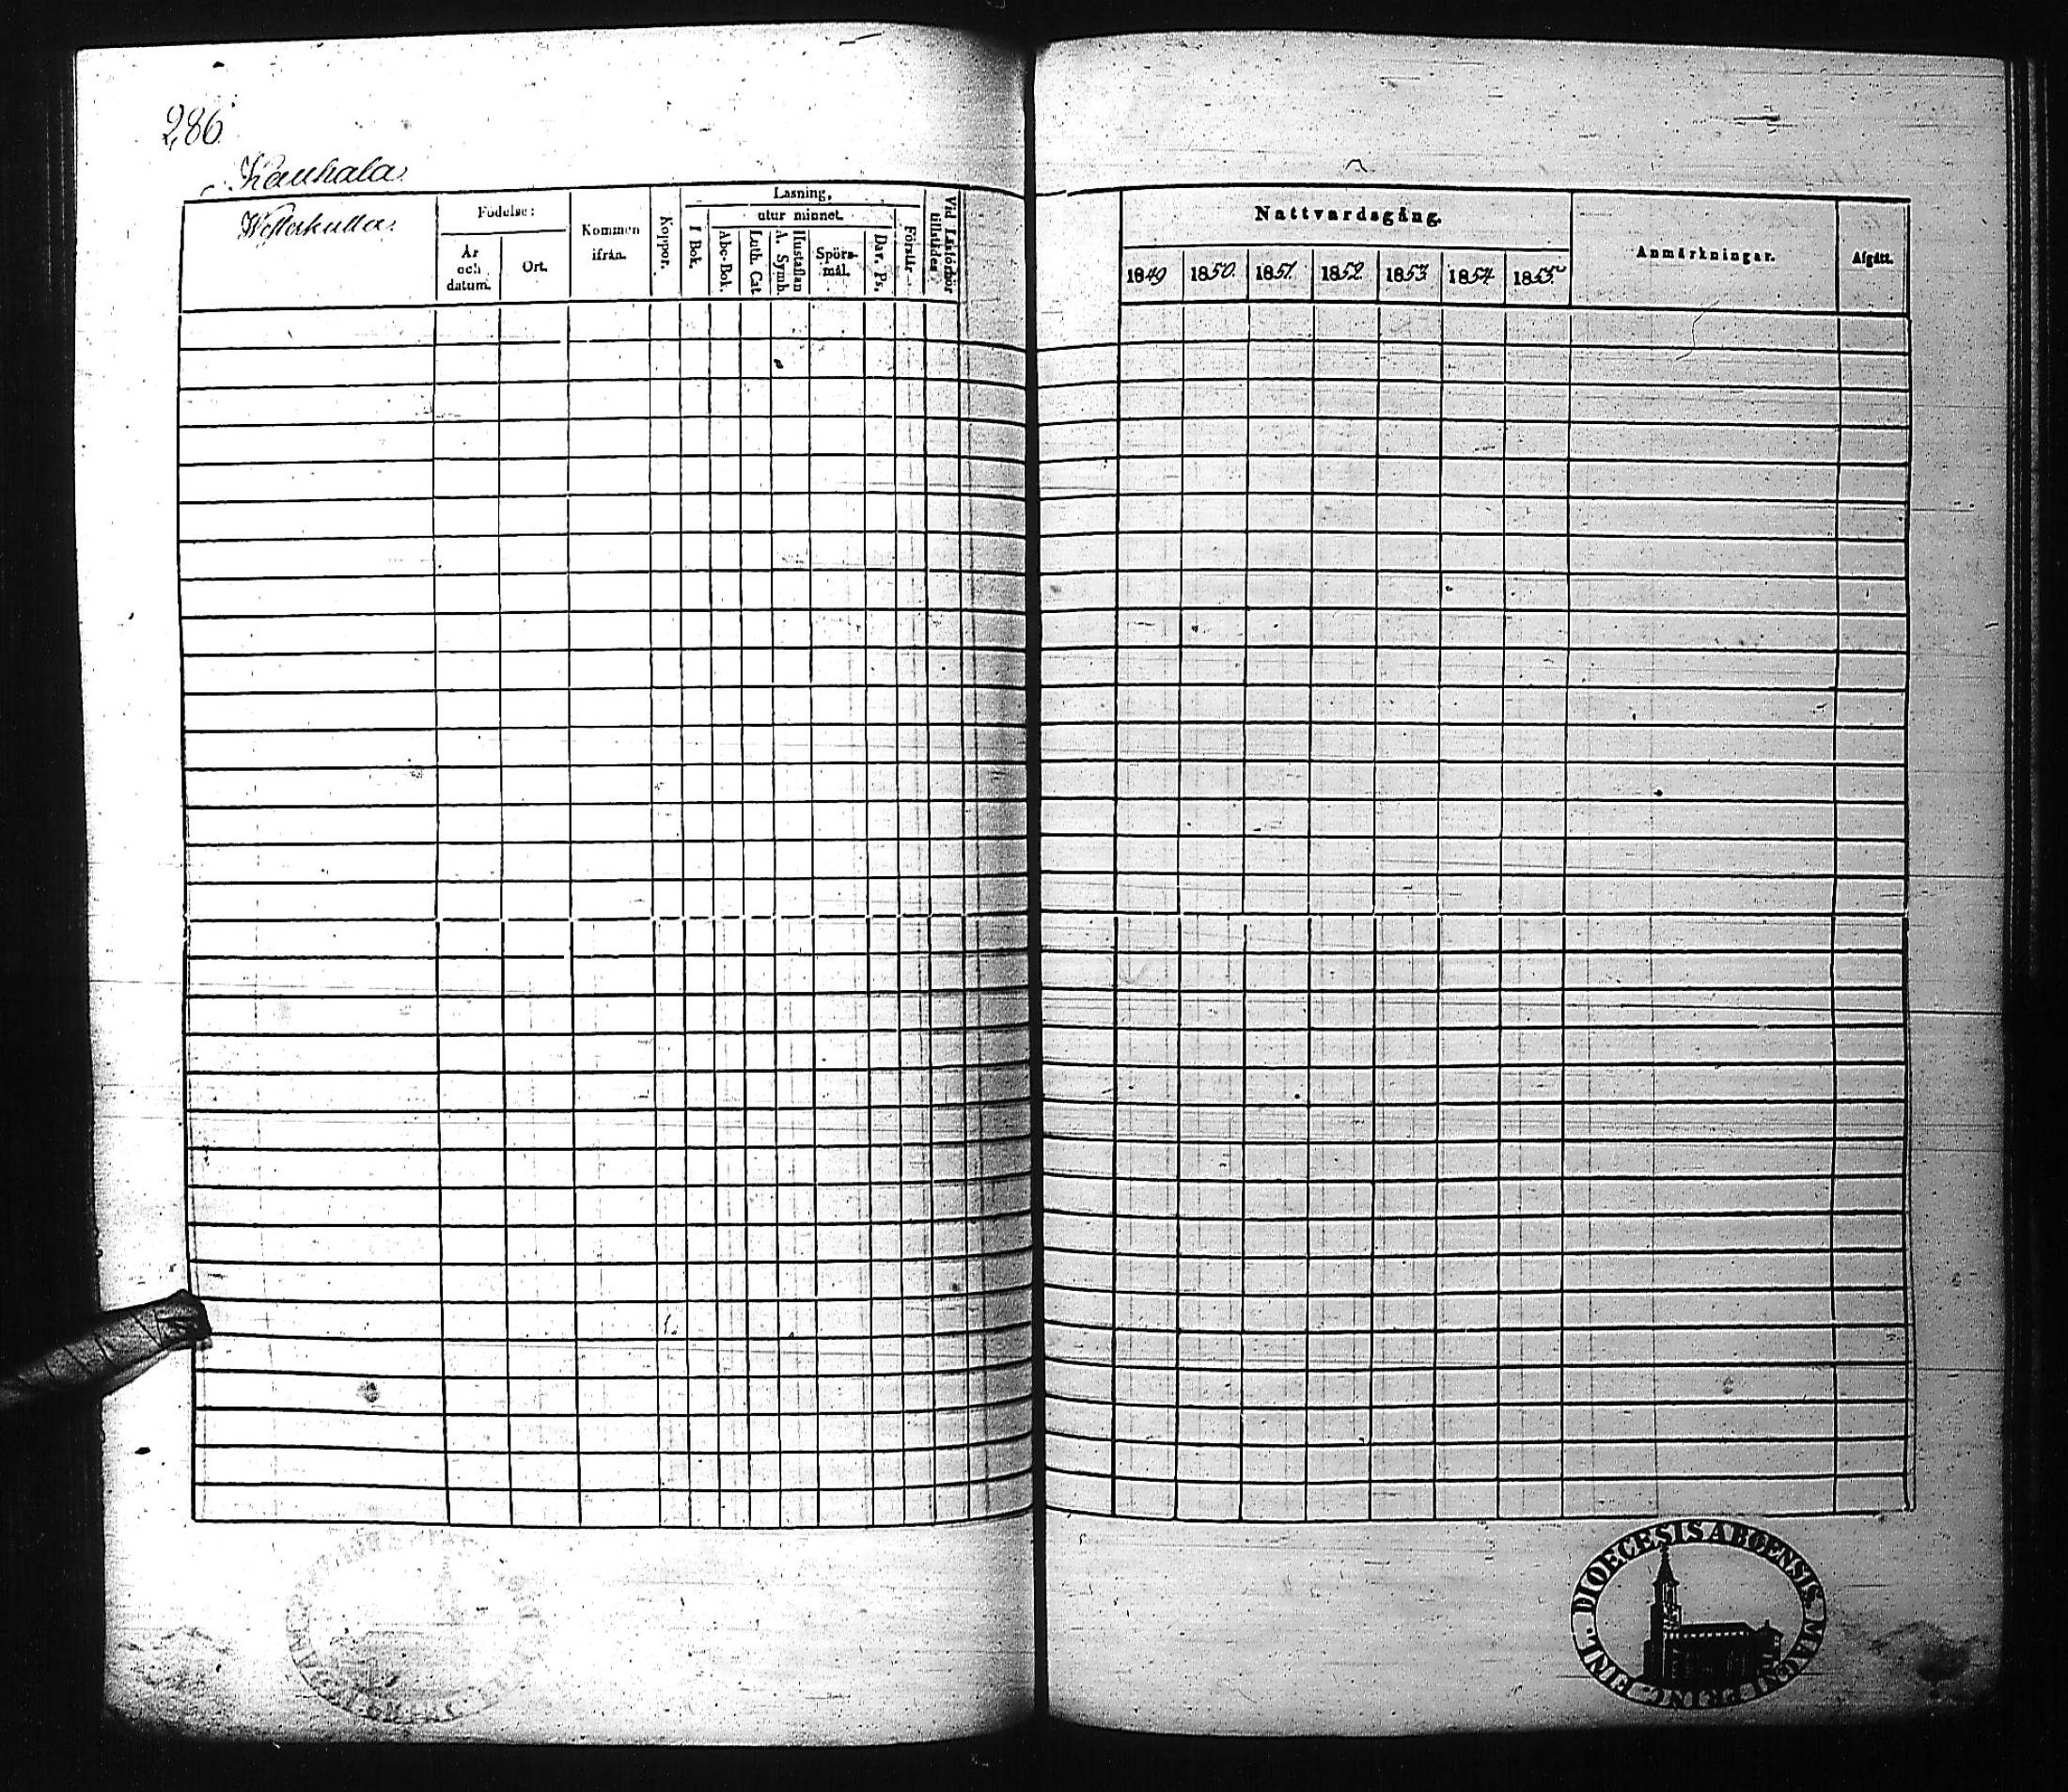 286
Kauhala
Westerkulla
Födelse:
År och datum.
Ort.
Kommen ifrån.
Koppor.
Läsning,
utur minnet.
I Bok.
Abc-Bok.
Luth. Cat
A. Symb. Hustaflan
Spörs-mål.
Dav. Ps.
Förstår
Vid Läsförhör tillstädes
Nattvardsgång.
1849 1850. 1851. 1852. 1853 1854. 1855.
Anmärkningar.
Afgått.
DIOECESIS ABOENSIS. MAGNI PRINC. FINL.